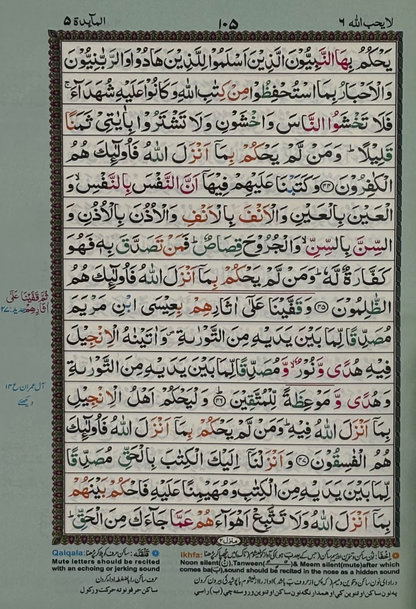 لا يحب الله ٦
١٠٥
المآئدة ٥
يَحْكُمُ بِهَا النَّبِيُّوْنَ الَّذِيْنَ اَسْلَمُوْا لِلَّذِيْنَ هَادُوْا وَالرَّبّٰنِيُّوْنَ
وَالْاَحْبَارُ بِمَا اسْتُحْفِظُوْا مِنْ كِتٰبِ اللّٰهِ وَكَانُوْا عَلَيْهِ شُهَدَآءَ ۚ
فَلَا تَخْشَوُا النَّاسَ وَاخْشَوْنِ وَلَا تَشْتَرُوْا بِاٰيٰتِيْ ثَمَنًا
قَلِيْلًا ؕ وَمَنْ لَّمْ يَحْكُمْ بِمَاۤ اَنْزَلَ اللّٰهُ فَاُولٰٓئِكَ هُمُ
الْكٰفِرُوْنَ ﴿۴۴﴾ وَكَتَبْنَا عَلَيْهِمْ فِيْهَاۤ اَنَّ النَّفْسَ بِالنَّفْسِ ۙ وَ
الْعَيْنَ بِالْعَيْنِ وَالْاَنْفَ بِالْاَنْفِ وَالْاُذُنَ بِالْاُذُنِ وَ
السِّنَّ بِالسِّنِّ ۙ وَالْجُرُوْحَ قِصَاصٌ ؕ فَمَنْ تَصَدَّقَ بِهٖ فَهُوَ
كَفَّارَةٌ لَّهٗ ؕ وَمَنْ لَّمْ يَحْكُمْ بِمَاۤ اَنْزَلَ اللّٰهُ فَاُولٰٓئِكَ هُمُ
الظّٰلِمُوْنَ ﴿۴۵﴾ وَقَفَّيْنَا عَلٰۤى اٰثَارِهِمْ بِعِيْسَى ابْنِ مَرْيَمَ
مُصَدِّقًا لِّمَا بَيْنَ يَدَيْهِ مِنَ التَّوْرٰىةِ ۪ وَاٰتَيْنٰهُ الْاِنْجِيْلَ
فِيْهِ هُدًى وَّنُوْرٌ ۙ وَّمُصَدِّقًا لِّمَا بَيْنَ يَدَيْهِ مِنَ التَّوْرٰىةِ
وَهُدًى وَّمَوْعِظَةً لِّلْمُتَّقِيْنَ ﴿۴۶﴾ؕ وَلْيَحْكُمْ اَهْلُ الْاِنْجِيْلِ
بِمَاۤ اَنْزَلَ اللّٰهُ فِيْهِ ؕ وَمَنْ لَّمْ يَحْكُمْ بِمَاۤ اَنْزَلَ اللّٰهُ فَاُولٰٓئِكَ
هُمُ الْفٰسِقُوْنَ ﴿۴۷﴾ وَاَنْزَلْنَاۤ اِلَيْكَ الْكِتٰبَ بِالْحَقِّ مُصَدِّقًا
لِّمَا بَيْنَ يَدَيْهِ مِنَ الْكِتٰبِ وَمُهَيْمِنًا عَلَيْهِ فَاحْكُمْ بَيْنَهُمْ
بِمَاۤ اَنْزَلَ اللّٰهُ وَلَا تَتَّبِعْ اَهْوَآءَهُمْ عَمَّا جَآءَكَ مِنَ الْحَقِّ ؕ
Qalqala:
Mute letters should be recited
with an echoing or jerking sound
Ikhfa:
Noon silent(ن), Tanween & Meem silent(mute)after which
comes ba(ب), Sound should be recited in the nose as a hidden sound